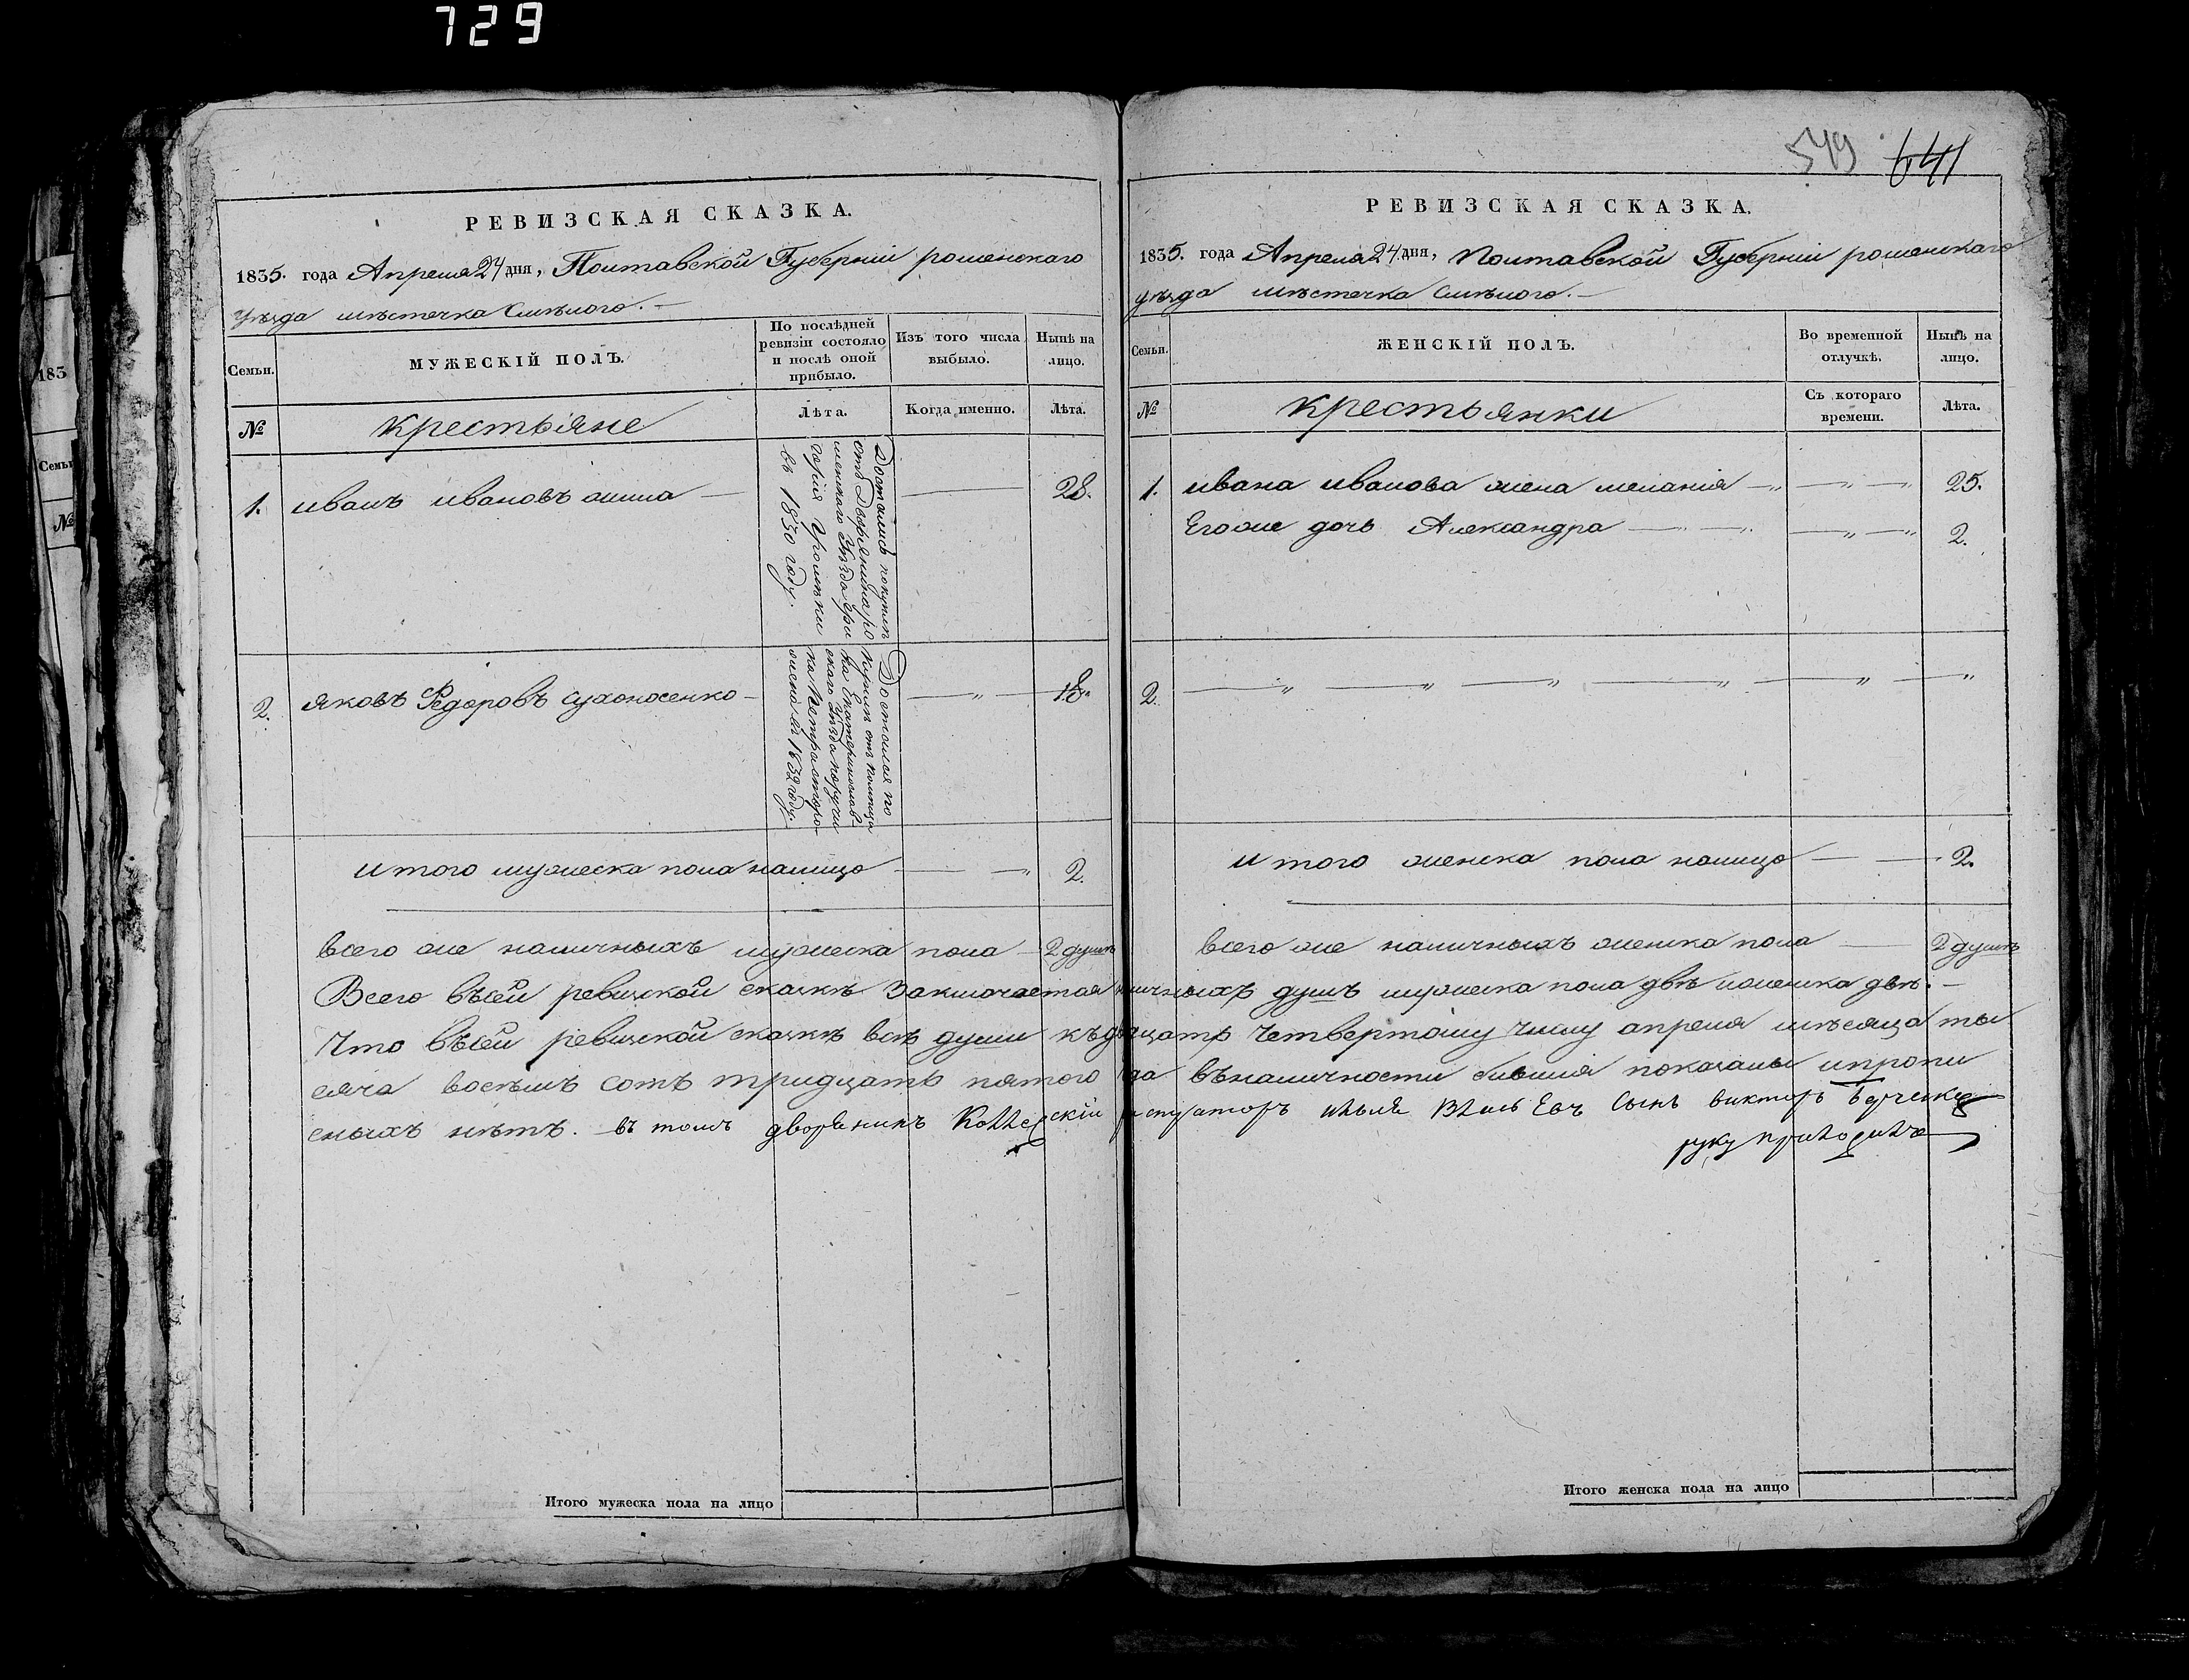 729
549 641
РЕВИЗСКАЯ СКАЗКА.
1835. года Апреля 24 дня, Полтавской Губернiи роменского
уѣзда мѣстечка Смѣлого.
Семьи.
МУЖЕСКIЙ ПОЛЪ.
По послѣдней ревизiи состояло и послѣ оной прибыло.
Изъ того числа выбыло.
Нынѣ на лицо.
№
Крестьяне
Лѣта.
Когда именно.
Лѣта.
1. иванъ ивановъ
28.
Достались покупкѣ
отъ Дворянина ро
менского Уѣзда Гри
горiя Громѣки
въ 1830 году.
2. яковъ Федоровъ сухоносенко
18.
Достался по
купкѣ отъ помѣщи
ка Екатеринослав-
ского Уѣзда поручи
ка
1832 году.
итого мужеска пола налицо 2.
всего же наличныхъ мужеска пола 2 душъ
Итого мужеска пола на лицо
РЕВИЗСКАЯ СКАЗКА.
1835. года Апреля 24 дня, Полтавской Губернiи роменскаго
уѣзда мѣстечка Смѣлого.
Семьи.
ЖЕНСКIЙ ПОЛЪ.
Во временной отлучкѣ.
Нынѣ на лицо.
№
Крестьянки
Съ котораго времени.
Лѣта.
1. ивана иванова жена меланiя 25.
Егоже дочь Александра 2.
2.
итого женска пола налицо 2.
всего же наличныхъ женска пола 2 душъ
Всего въсей ревизской сказкѣ заключается наличныхъ душъ мужеска пола двѣ иженска двѣ.
Что въсей ревизской сказкѣ всѣ души къдвадцать четвертому числу апреля мѣсяца ты
сяча восѣмъ сотъ тридцать пятого года въналичности бывшiя показаны ипропи
сныхъ нѣтъ. въ томъ дворянинъ Коллежскiй регистраторъ сынъ викторъ
руку приложилъ
Итого женска пола на лицо
183
Семьи
№